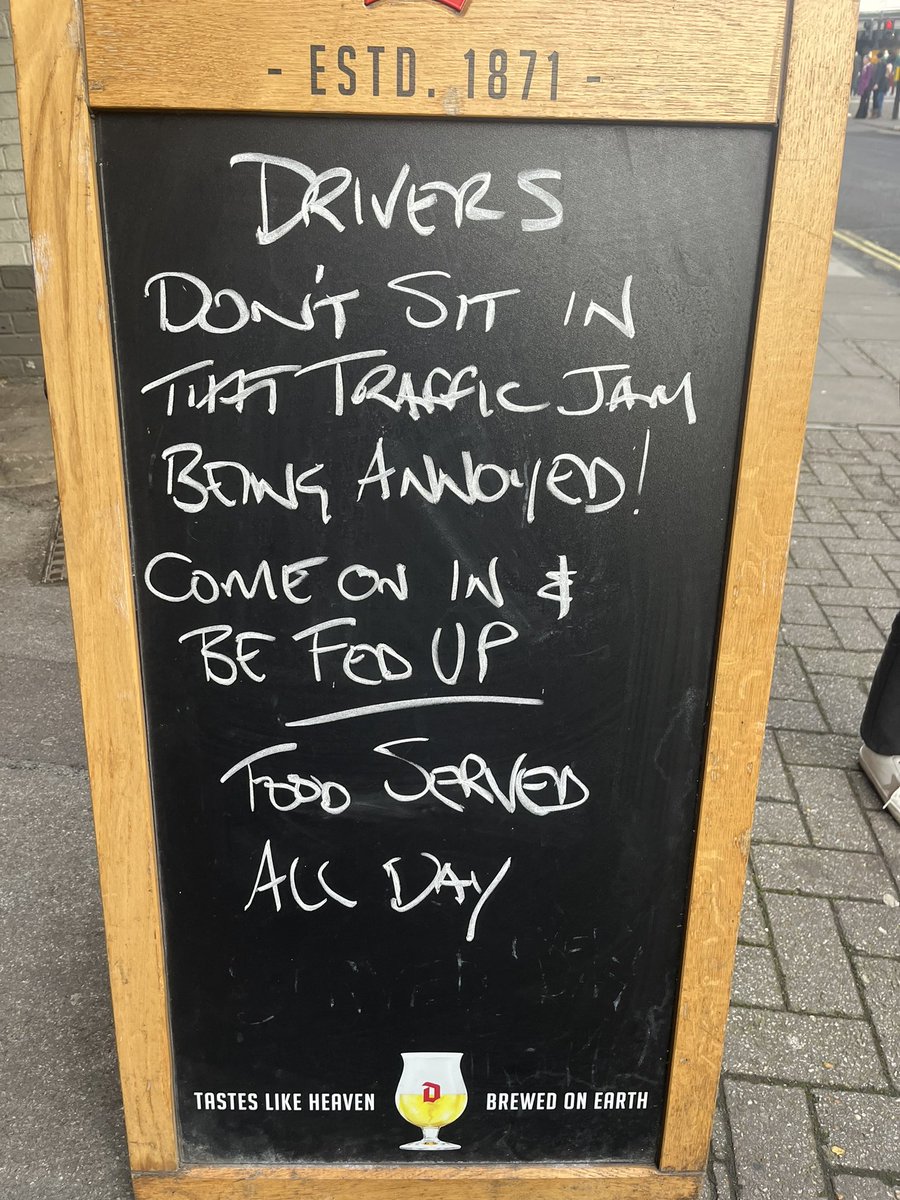 - ESTD. 1871 -
DRIVERS
DON'T SIT IN
THAT TRAFFIC JAM
BEING ANNOYED!
COME ON IN &
BE FED UP
FOOD SERVED
ALL DAY
D
TASTES LIKE HEAVEN BREWED ON EARTH